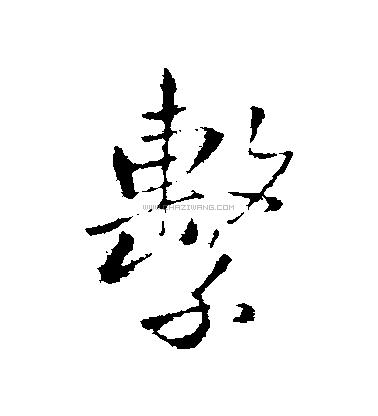 繫
WWW.CHAZIWANG.COM